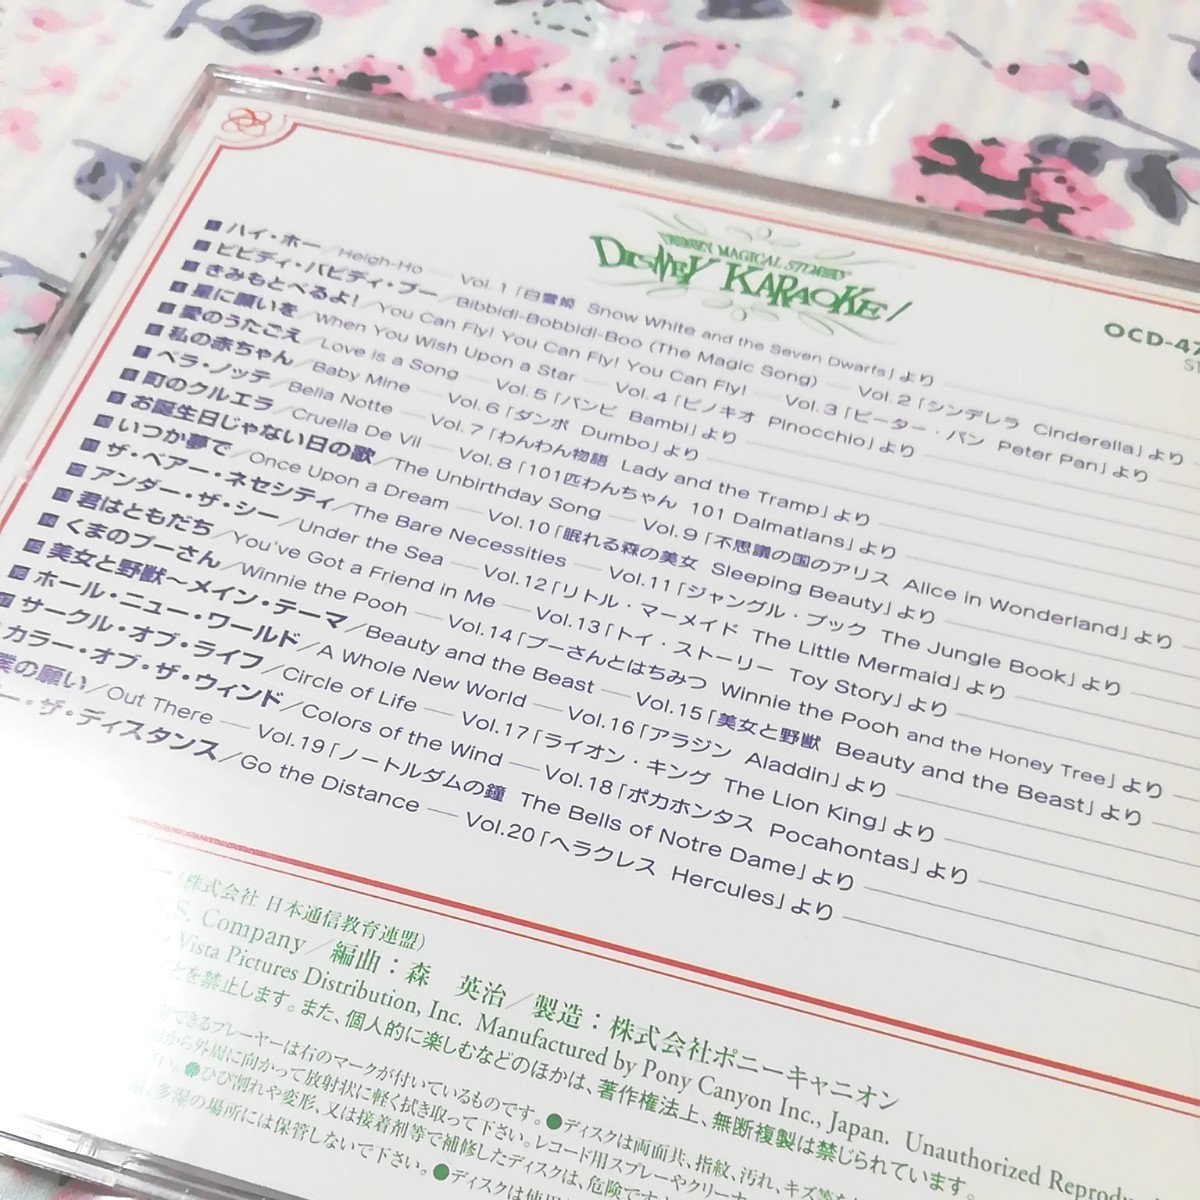 DISNEY MAGICAL STORIES
DISNEY KARAOKE!
OCD-47
ハイ・ホー/Heigh-Ho — Vol.1「白雪姫 Snow White and the Seven Dwarfs」より
ビビディ・バビディ・ブー/Bibbidi-Bobbidi-Boo (The Magic Song) — Vol.2「シンデレラ Cinderella」より
きみもとべるよ!/You Can Fly! You Can Fly! You Can Fly! — Vol.3「ピーター・パン Peter Pan」より
星に願いを/When You Wish Upon a Star — Vol.4「ピノキオ Pinocchio」より
愛のうたごえ/Love is a Song — Vol.5「バンビ Bambi」より
私の赤ちゃん/Baby Mine — Vol.6「ダンボ Dumbo」より
ベラ・ノッテ/Bella Notte — Vol.7「わんわん物語 Lady and the Tramp」より
町のクルエラ/Cruella De Vil — Vol.8「101匹わんちゃん 101 Dalmatians」より
お誕生日じゃない日の歌/The Unbirthday Song — Vol.9「不思議の国のアリス Alice in Wonderland」より
いつか夢で/Once Upon a Dream — Vol.10「眠れる森の美女 Sleeping Beauty」より
ザ・ベアー・ネセシティ/The Bare Necessities — Vol.11「ジャングル・ブック The Jungle Book」より
アンダー・ザ・シー/Under the Sea — Vol.12「リトル・マーメイド The Little Mermaid」より
君はともだち/You've Got a Friend in Me — Vol.13「トイ・ストーリー Toy Story」より
くまのプーさん/Winnie the Pooh — Vol.14「プーさんとはちみつ Winnie the Pooh and the Honey Tree」より
美女と野獣～メイン・テーマ/Beauty and the Beast — Vol.15「美女と野獣 Beauty and the Beast」より
ホール・ニュー・ワールド/A Whole New World — Vol.16「アラジン Aladdin」より
サークル・オブ・ライフ/Circle of Life — Vol.17「ライオン・キング The Lion King」より
カラー・オブ・ザ・ウィンド/Colors of the Wind — Vol.18「ポカホンタス Pocahontas」より
僕の願い/Out There — Vol.19「ノートルダムの鐘 The Bells of Notre Dame」より
ー・ザ・ディスタンス/Go the Distance — Vol.20「ヘラクレス Hercules」より
(株式会社 日本通信教育連盟)
.S. Company/編曲：森 英治/製造：株式会社ポニーキャニオン
Vista Pictures Distribution, Inc. Manufactured by Pony Canyon Inc., Japan. Unauthorized Reprodu
とを禁止します。また、個人的に楽しむなどのほかは、著作権法上、無断複製は禁じられています。
できるプレーヤーは右のマークが付いているものです。●ディスクは両面共、指紋、汚れ、キズ等を
から外周に向かって放射状に軽く拭き取って下さい。レコード用スプレーやクリーナ
い。●ひび割れや変形、又は接着剤等で補修したディスクは、危険ですか
多湿の場所には保管しないで下さい。●ディスクは使用